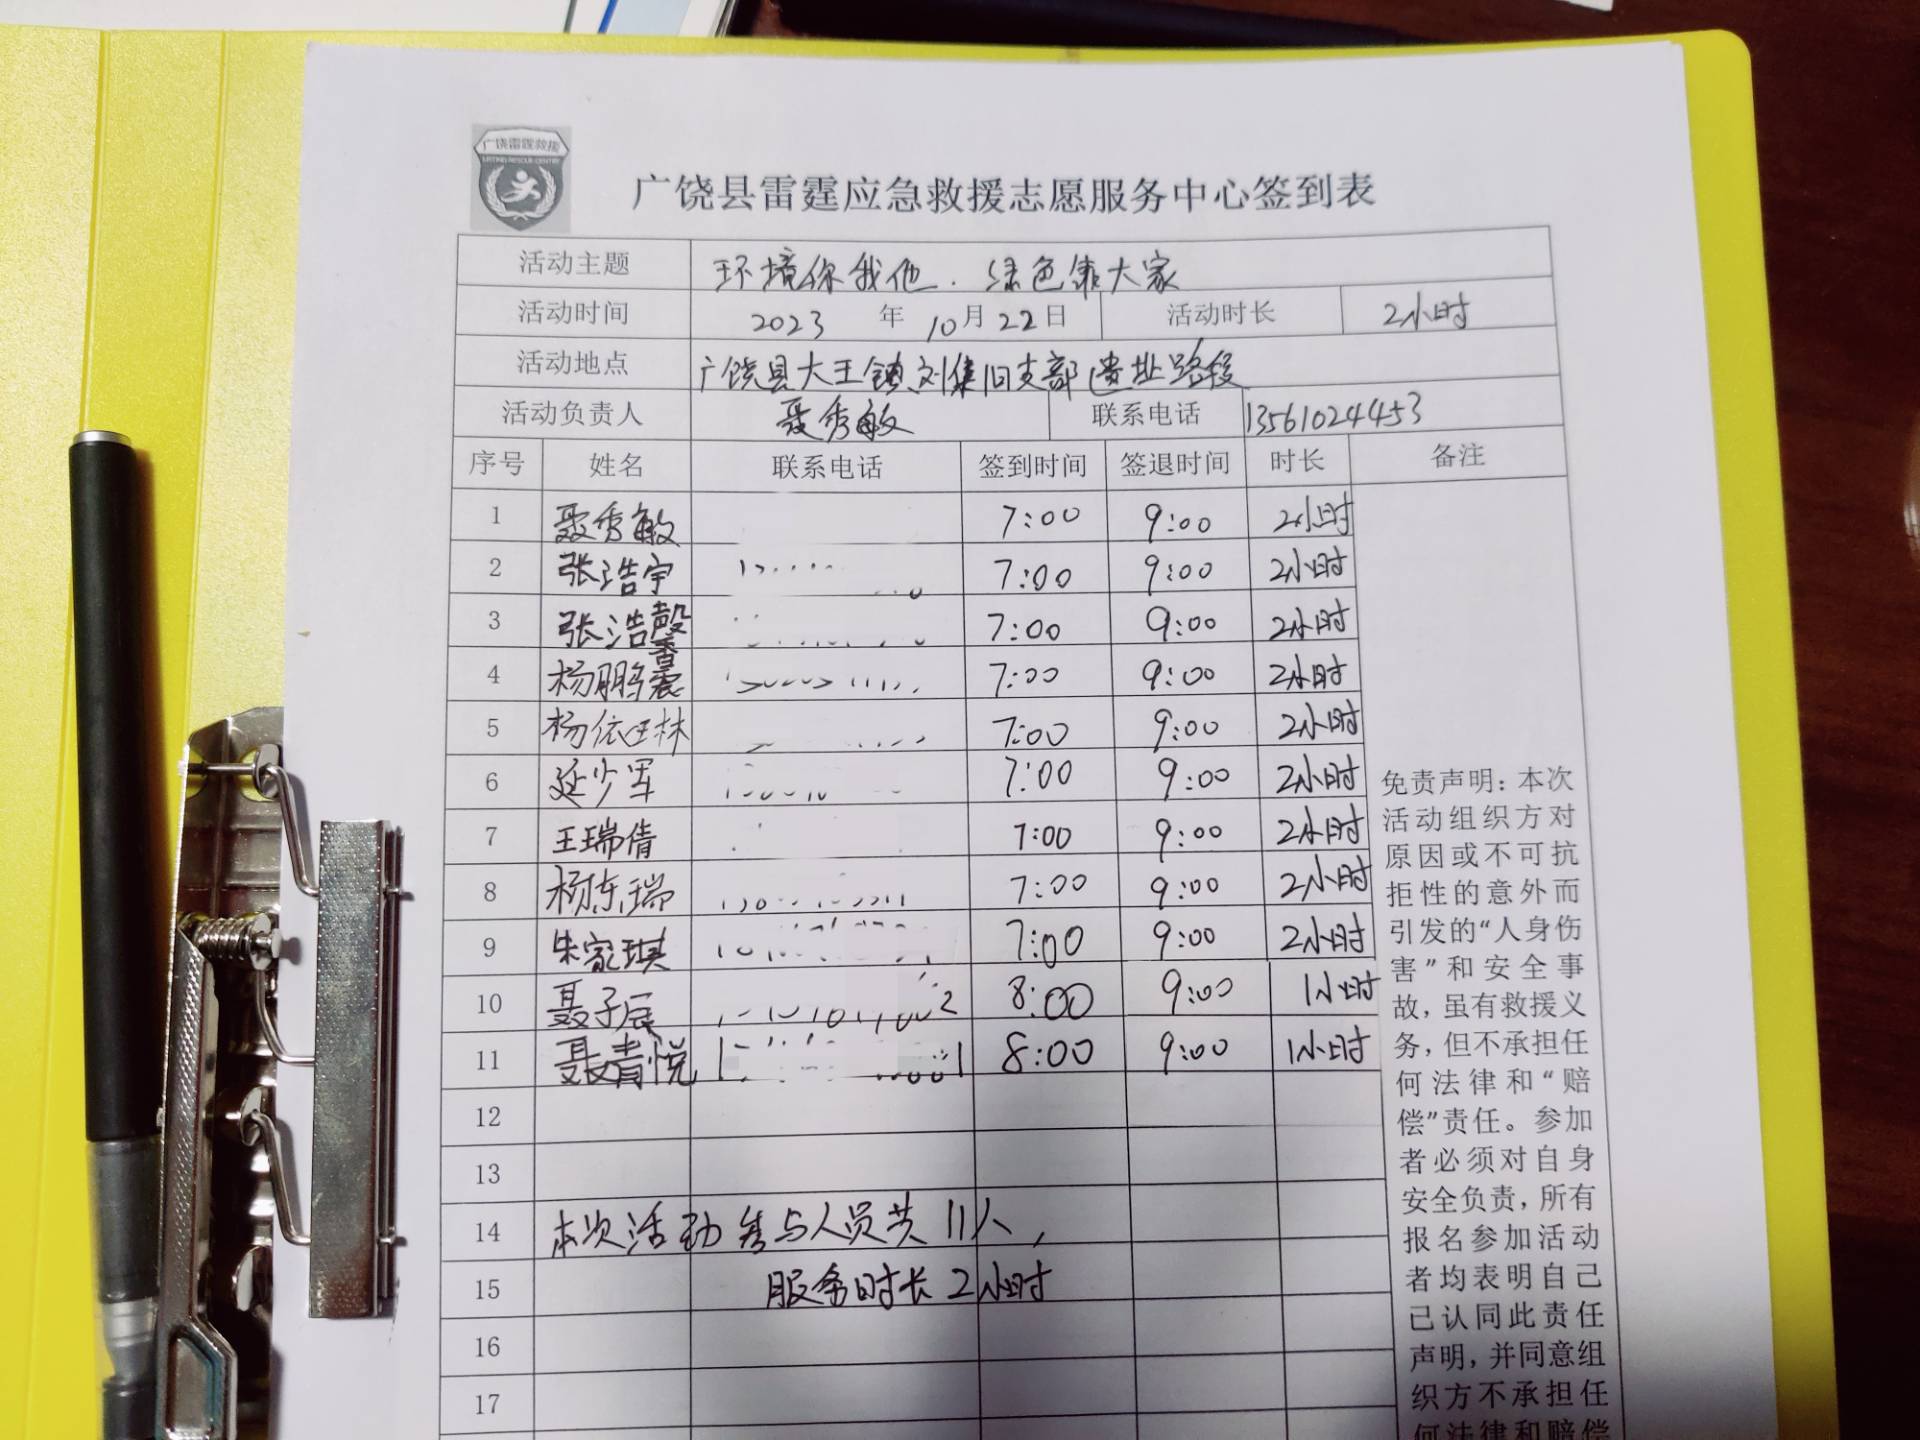 广饶雷霆救援
广饶县雷霆应急救援志愿服务中心签到表
活动主题 环境你我他.绿色靠大家
活动时间 2023 年 10 月 22 日 活动时长 2小时
活动地点 广饶县大王镇刘集旧支部遗址路段
活动负责人 聂秀敏 联系电话 13561024453
序号 姓名 联系电话 签到时间 签退时间 时长 备注
1 聂秀敏 7:00 9:00 2小时
2 张浩宇 7:00 9:00 2小时
3 张浩馨 7:00 9:00 2小时
4 杨鹏震 7:00 9:00 2小时
5 杨依琳 7:00 9:00 2小时
6 延少军 7:00 9:00 2小时
7 王瑞倩 7:00 9:00 2小时
8 杨东瑞 7:00 9:00 2小时
9 朱家琪 7:00 9:00 2小时
10 聂子辰 8:00 9:00 1小时
11 聂青悦 8:00 9:00 1小时
12
13
14 本次活动参与人员共11人，
15 服务时长2小时
16
17
免责声明：本次
活动组织方对
原因或不可抗
拒性的意外而
引发的“人身伤
害”和安全事
故，虽有救援义
务，但不承担任
何法律和“赔
偿”责任。参加
者必须对自身
安全负责，所有
报名参加活动
者均表明自己
已认同此责任
声明，并同意组
织方不承担任
何法律和赔偿